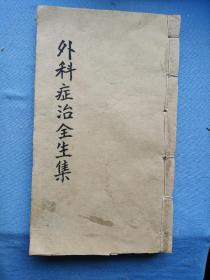 外科症治全生集